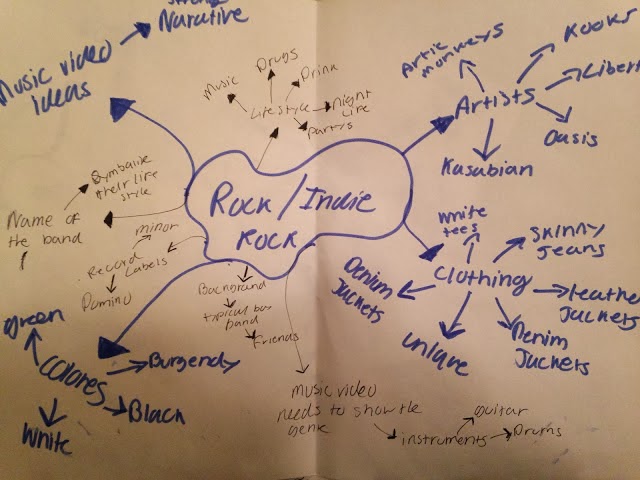 Strong
Narative
Music video
ideas
Drugs
Music
Drink
Lifestyle
Night
Life
Partys
Artic
monkeys
Kooks
Artists
Libert
Oasis
Kasabian
Symbolise
their life
style
Name of
the band
minor
Record
Labels
Domino
Rock/Indie
rock
White
tees
Skinny
Jeans
Clothing
Denim
Jackets
leather
Jackets
Denim
Jackets
unique
Background
typical boy
band
Friends
green
colores
Burgendy
Black
White
music video
needs to show the
genre
instruments
guitar
Drums